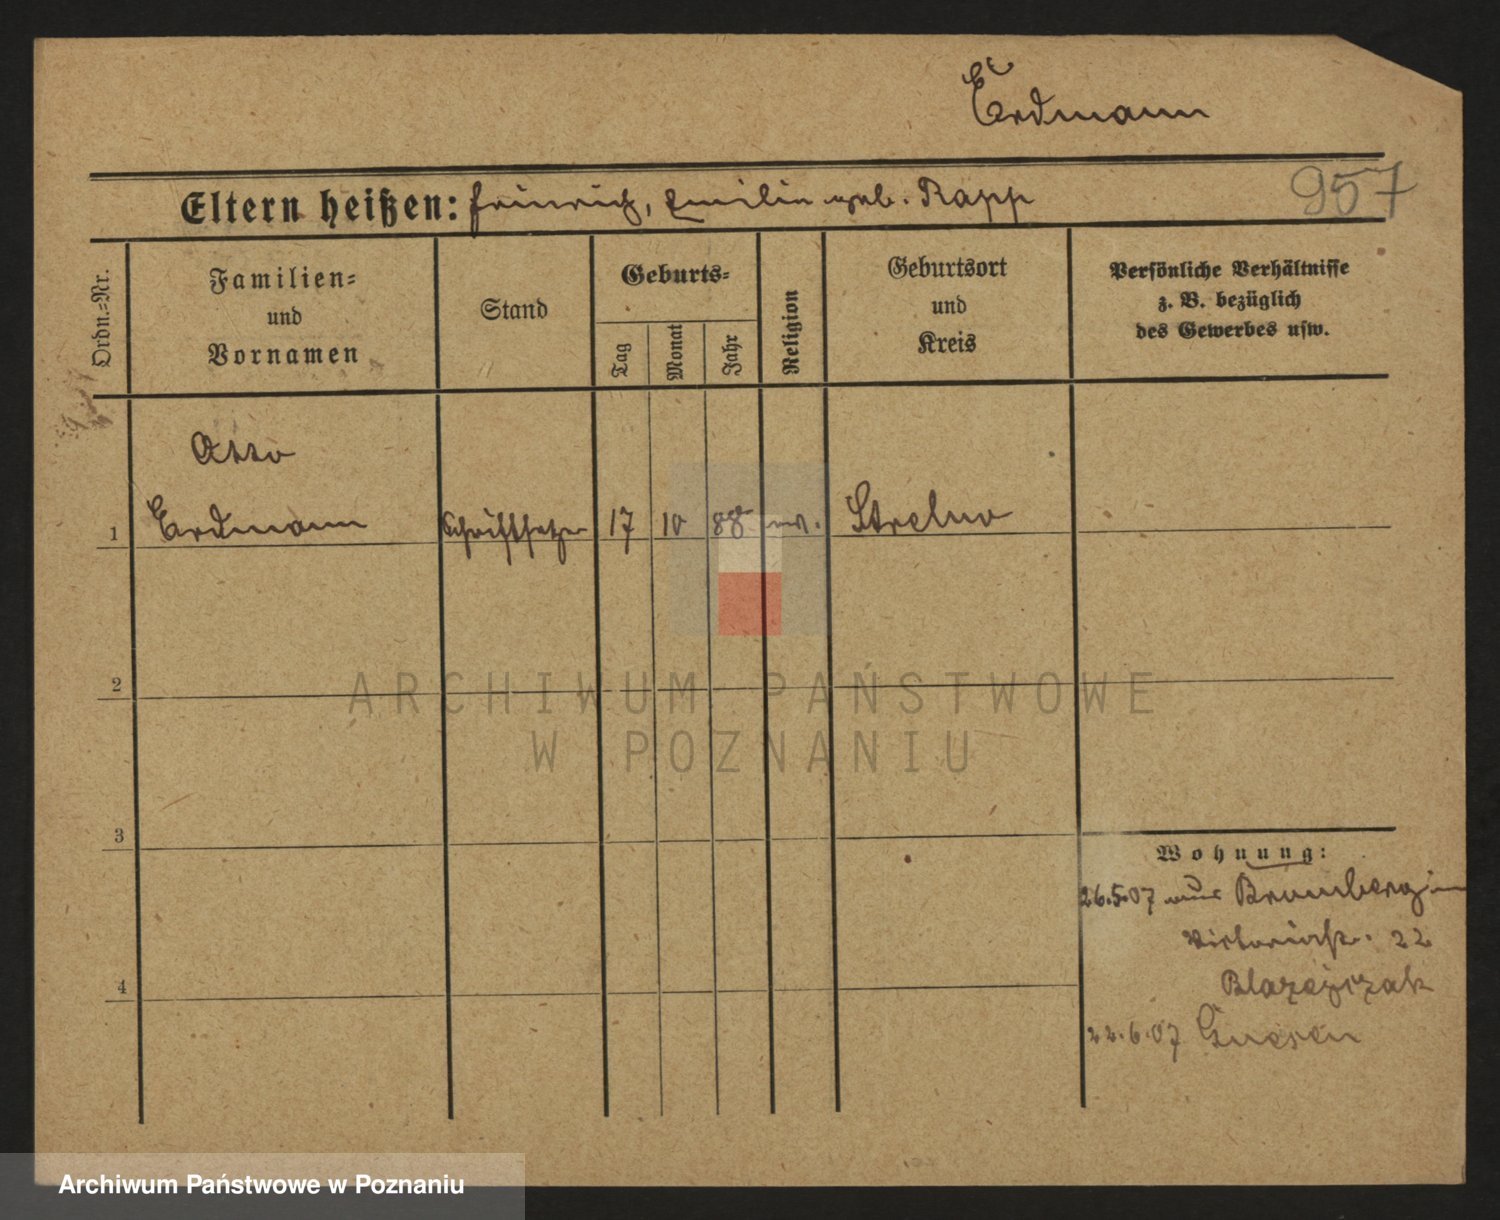 Erdmann
957
Eltern heißen: Heinrich, Emilie geb. Rapp
Ordn.-Nr.
Familien-
und
Vornamen
Stand
Geburts-
Tag
Monat
Jahr
Religion
Geburtsort
und
Kreis
Persönliche Verhältnisse
z. B. bezüglich
des Gewerbes usw.
Otto
1 Erdmann Schriftsetzer 17 10 88 ev. Strelno
2
3
4
Wohnung:
26.5.07 aus Bromberg in
Victoriastr. 22
Blazejczak
22.6.07 Gnesen
ARCHIWUM PAŃSTWOWE
W POZNANIU
Archiwum Państwowe w Poznaniu